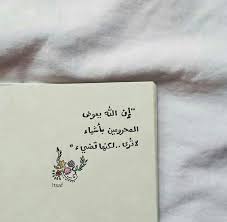 "إن الله يعوض
المحرومين بأشياء
لاتُرى..لكنها تضيء"